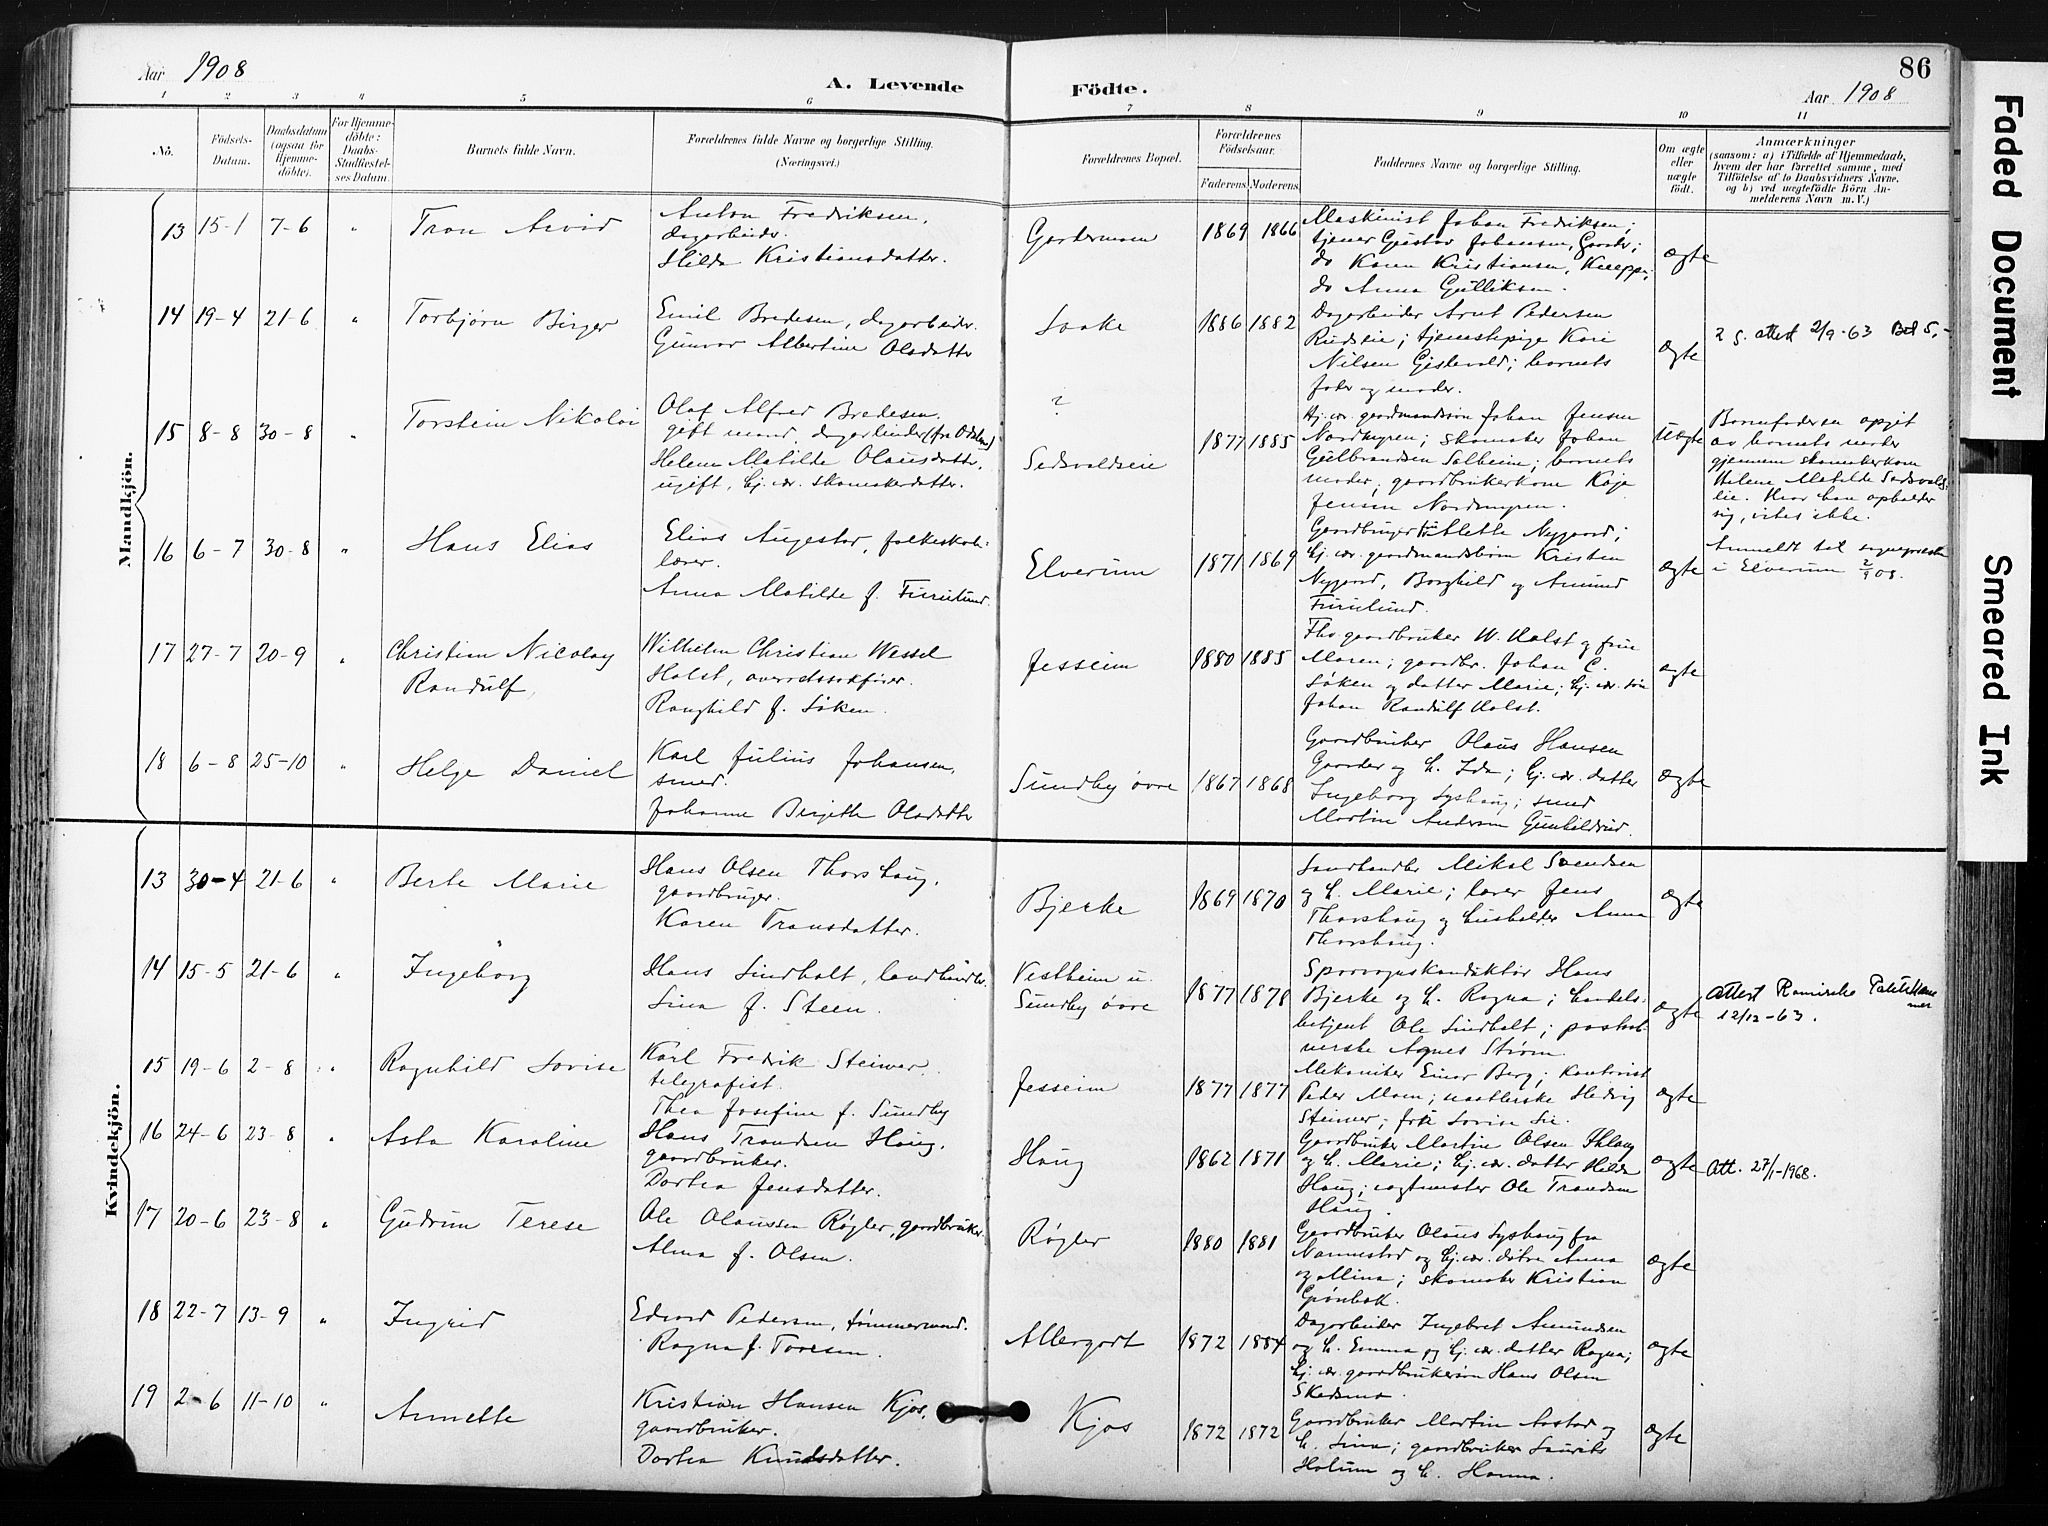 Aar 1908
A. Levende Födte.
86
Aar 1908
1 2 3 4 5 6 7 8 9 10 11
No.
Födsels-Datum.
Daabsdatum (ogsaa for Hjemme-döbte).
For Hjemme-döbte: Daabs-Stadfæstel-ses Datum.
Barnets fulde Navn.
Forældrenes fulde Navne og borgerlige Stilling. (Næringsvei.)
Forældrenes Bopæl.
Forældrenes Födselsaar.
Faderens. Moderens.
Faddernes Navne og borgerlige Stilling.
Om ægte eller uægte födt.
Anmærkninger
(saasom: a) i Tilfælde af Hjemmedaab, hvem der har forrettet samme, med Tilföielse af to Daabsvidners Navne. og b) ved uægtefödte Börn An-melderens Navn m. V.)
Mandkjön.
13 15-1 7-6 " Tron Arvid
Anton Fredriksen,
dagarbeider.
Hilda Kristiansdatter.
Gardermoen 1869 1866
Maskinist Johan Fredriksen;
tjener Gustav Johansen, Gaarder;
do Karen Kristiansen,
do Anna Gulliksen.
ægte
14 19-4 21-6 " Torbjørn Birger
Emil Bredesen, dagarbeider.
Gunvor Albertine Olsdatter
1886 1882
Dagarbeider Arnt Pedersen
Rudseie; tjenestepige Kari
Nilsen Gistevold; barnets
fader og moder.
ægte
2 s. attest 2/9-63 Bet 5,-
15 8-8 30-8 " Torstein Nikolai
Olaf Alfred Bredesen,
gift mand, dagarbeider (fra Odalen)
Helene Matilde Olausdatter,
ugift, hj. vær. skomakerdatter.
?
Sedsvaldseie 1877 1885
Hj. vær. gaardmandssøn Johan Jensen
Nordmyren; skomaker Johan
Gulbrandsen Solheim; barnets
moder; gaardbrukerkone Kaja
Jensen Nordmyren.
Uægte
Barnefaderen opgit
av barnets moder
gjennem skomakerkone
Helene Matilde Sedsvalds-
eie. Hvor han opholder
sig, vites ikke.
16 6-7 30-8 " Hans Elias
Elias Augestad, folkeskole-
lærer.
Anna Matilde f. Furulund.
Elverum 1871 1869
Gaardbruger Alette Nygaard;
hj. vær. gaardmandsbørn Kristen
Nygaard, Borghild og Amund
Furulund.
ægte
Anmeldt til sognepresten
i Elverum 2/9 08.
17 27-7 20-9 " Christian Nicolay
Randulf
Wilhelm Christian Wessel
Holst, overretssakfører.
Ranghild f. Løken.
Jesseim 1880 1885
Fhv. gaardbruker W. Holst og frue
Maren; gaardbr. Johan C.
Løken og datter Marie; hj. vær. søn
Johan Randulf Holst.
ægte
18 6-8 25-10 " Helge Daniel
Karl Julius Johansen,
smed.
Johanne Birgitte Olsdatter
Sundby øvre 1867 1868
Gaardbruker Olaus Hansen
Gaarder og h. Ida; hj. vær. datter
Ingeborg Lyshaug; smed
Martin Andersen Gunhildrud.
ægte
Kvindekjön.
13 30-4 21-6 " Berte Marie
Hans Olsen Thorshaug,
gaardbruger.
Karen Transdatter.
Bjerke 1869 1870
Landhandler Mikal Svendsen
og h. Marie; lærer Jens
Thorshaug og husholder. Anna
Thorshaug.
ægte
14 15-5 21-6 " Ingeborg
Hans Lindholt, landhandler.
Lina f. Steen.
Vestheim u.
Sundby øvre 1877 1878
Sporvognskonduktør Hans
Bjerke og h. Ragna; handels-
betjent Ole Lindholt;
Agnes Strøm.
ægte
Attest
12/12-63.
15 19-6 2-8 " Ragnhild Lovise
Karl Fredrik Steinar
telegrafist.
Thea Josefine f. Sundby
Jesseim 1877 1877
Mekaniker Einar Berg; kontorist
Peder Moen; Hedvig
Steinar; frk. Lovise Lie.
ægte
16 24-6 23-8 " Asta Karoline
Hans Trondsen Haug,
gaardbruker.
Dortea Jensdatter.
Haug 1862 1871
Gaardbruker Martin Olsen
og h. Marie; hj. vær. datter Hilda
Haug; vagtmester Ole Trondsen
Haug.
ægte
Att. 27/1-1968.
17 20-6 23-8 " Gudrun Terese
Ole Olaussen Røgler, gaardbruker.
Alma f. Olsen.
Røgler 1880 1881
Gaardbruker Olaus Lyshaug fra
Nannestad og hj. vær. døtre Anna
og Mina; skomaker Kristian
Grønbak.
ægte
18 22-7 13-9 " Ingrid
Edvard Pedersen, tømmermand.
Ragna f. Toresen.
Allergodt 1872 1884
Dagarbeider Ingebret Amundsen
og h. Emma og hj. vær. datter Ragna;
hj. vær. gaardbrukersøn Hans Olsen
Skedsmo.
ægte
19 2-6 11-10 " Annette
Kristian Hansen Kjos,
gaardbruker.
Dortea Knudsdatter.
Kjos 1872 1872
Gaardbruker Martin Aastad og
h. Lina; gaardbruker Laurits
Holum og h. Hanna.
ægte
Faded Document
Smeared Ink